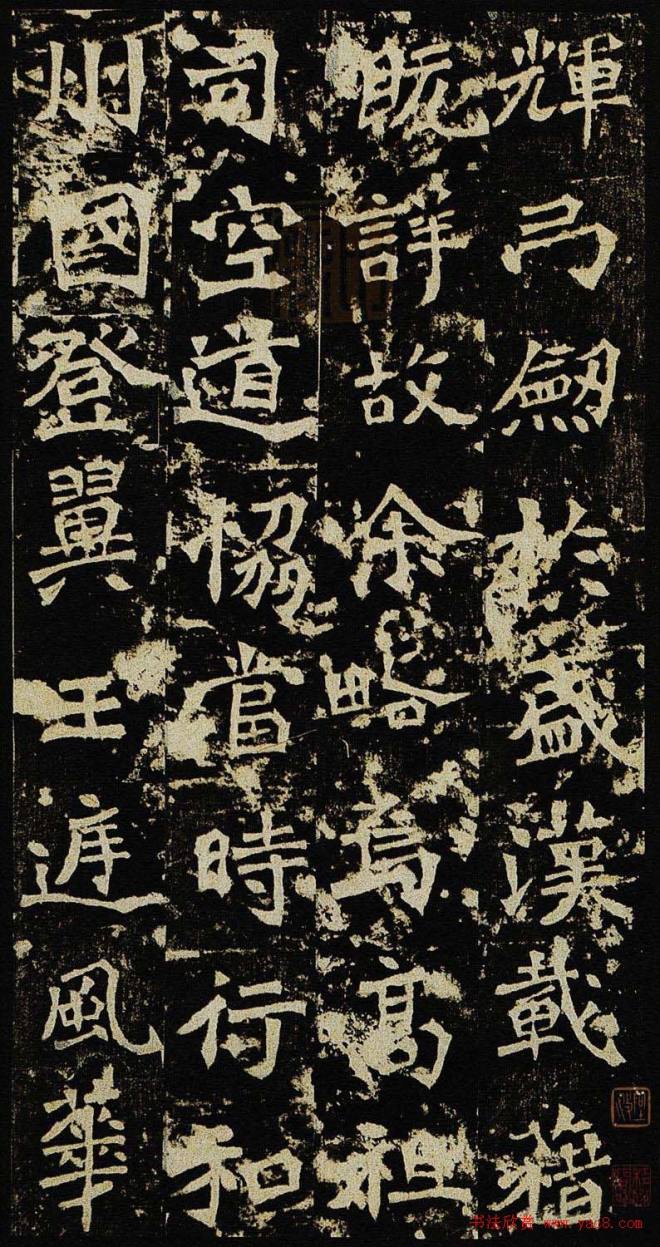 輝弓劔於盛漢載藉
既詳故余略焉高祖
司空道協當時行和
州國登翼王庭風華
书法欣赏 www.yac8.com